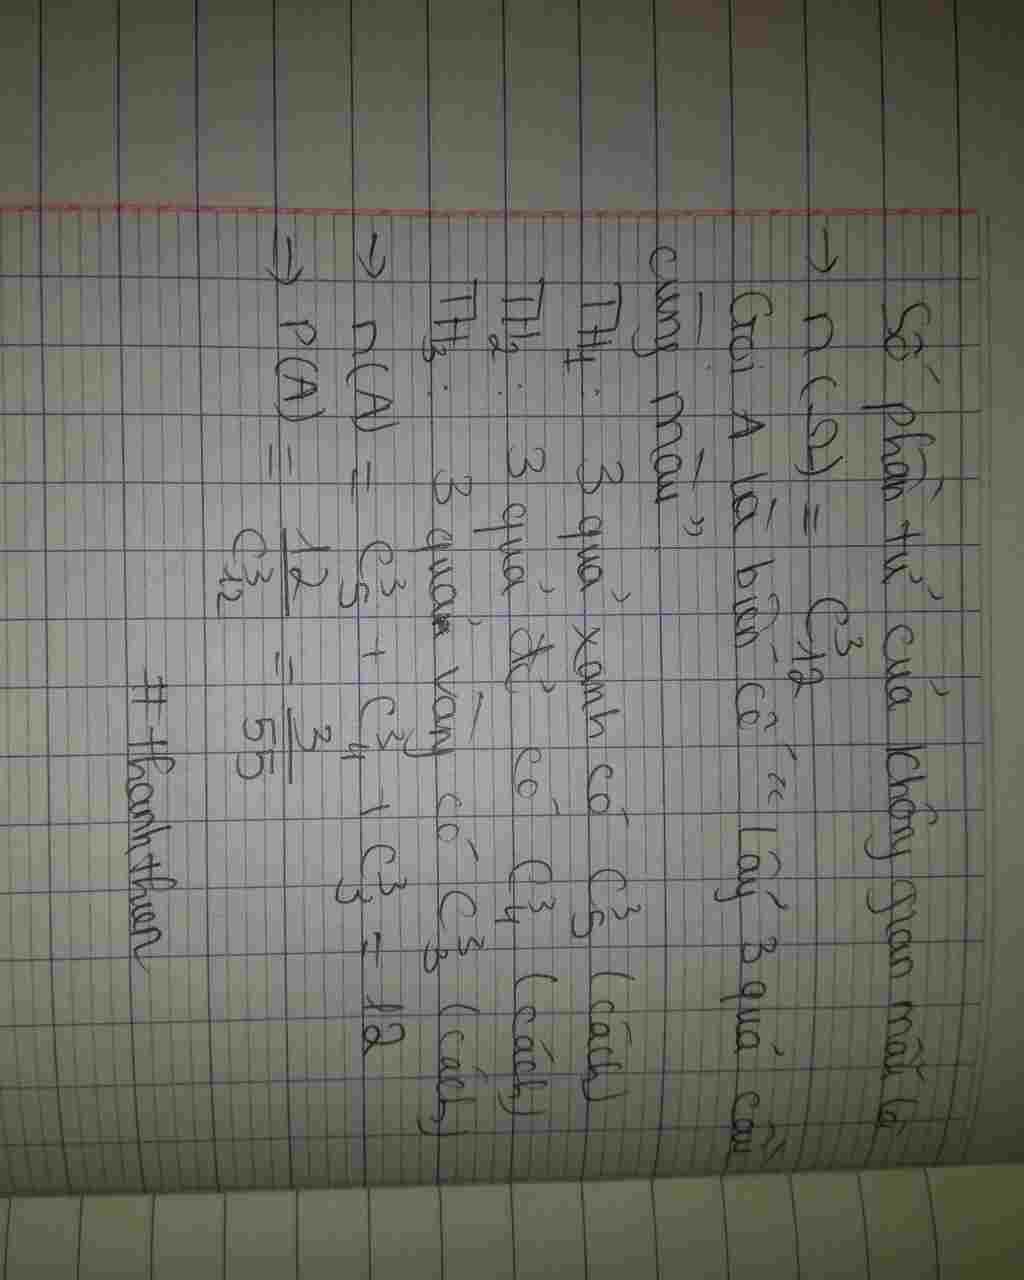 Số phần tử của không gian mẫu là
→ n(Ω) = C³₁₂
Gọi A là biến cố " Lấy 3 quả cầu
cùng màu "
TH₁: 3 quả xanh có C³₅ (cách)
TH₂: 3 quả đỏ có C³₄ (cách)
TH₃: 3 quả vàng có C³₃ (cách)
→ n(A) = C³₅ + C³₄ + C³₃ = 12
⇒ P(A) = 12/C³₁₂ = 3/55
#thanhthien